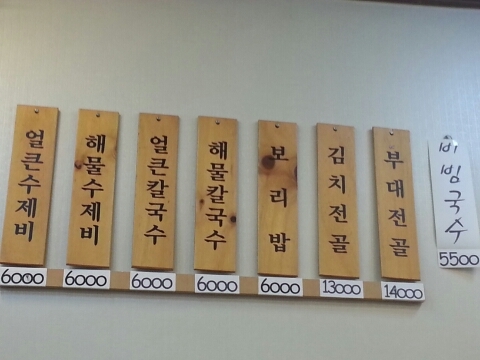 얼큰수제비
6000
해물수제비
6000
얼큰칼국수
6000
해물칼국수
6000
보리밥
6000
김치전골
13000
부대전골
14000
비빔국수
5500